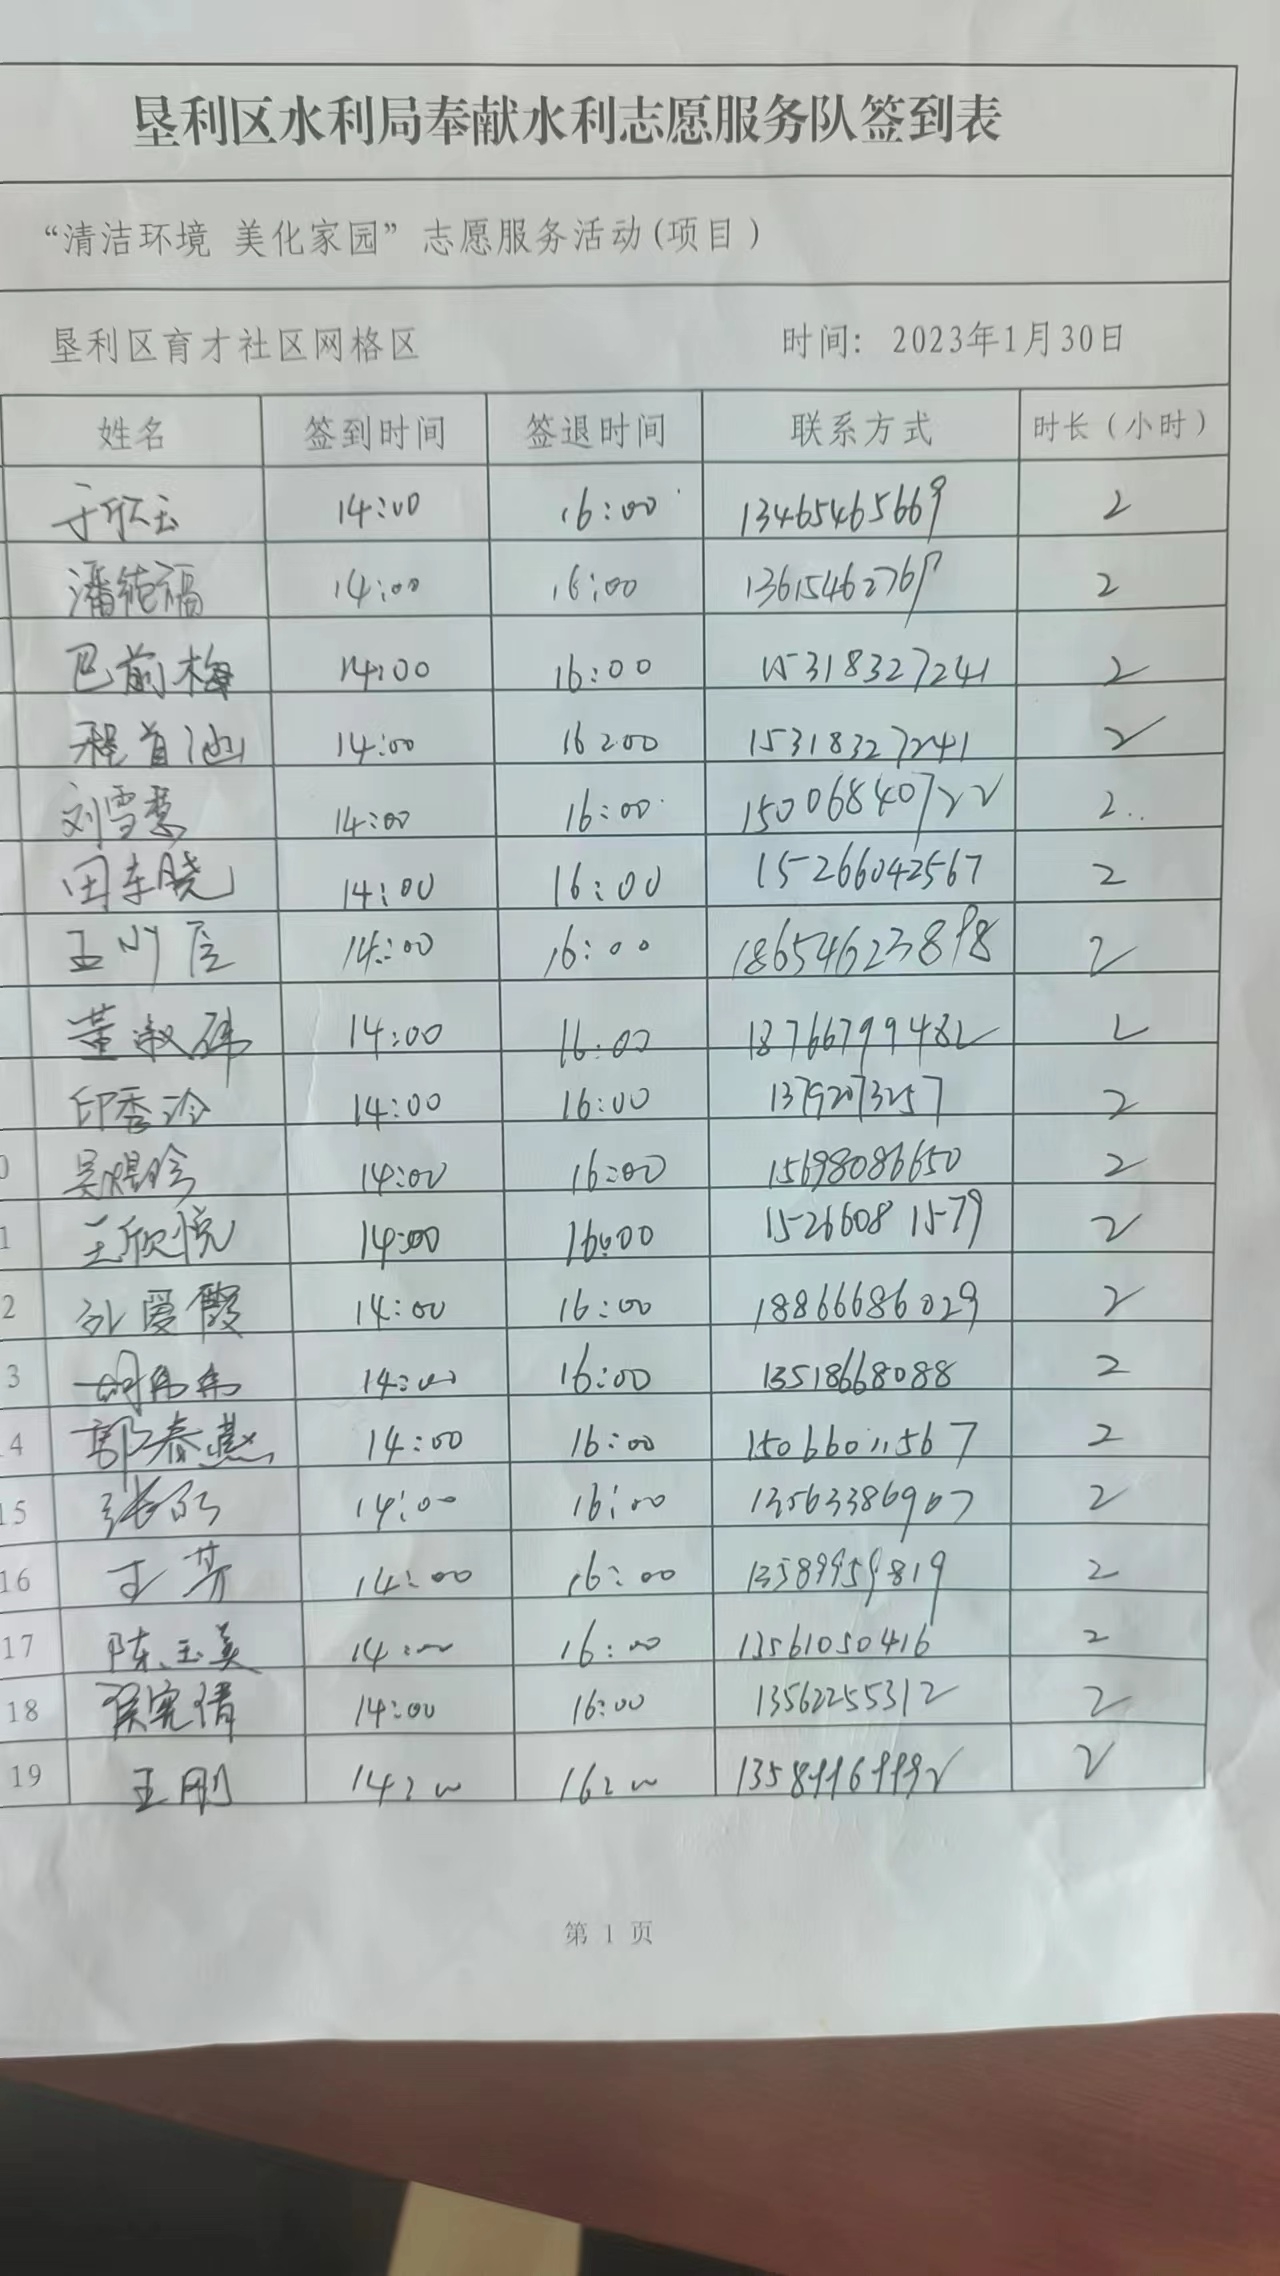 垦利区水利局奉献水利志愿服务队签到表
“清洁环境 美化家园”志愿服务活动(项目)
垦利区育才社区网格区 时间: 2023年1月30日
姓名 签到时间 签退时间 联系方式 时长(小时)
于欣玉 14:00 16:00 13465465669 2
潘统福 14:00 16:00 13615462769 2
巴前梅 14:00 16:00 15318327241 2
程首池 14:00 16:00 15318327241 2
刘雪慧 14:00 16:00 15006840722 2
田车晓 14:00 16:00 15266042567 2
王 14:00 16:00 18654623898 2
董淑伟 14:00 16:00 18766799482 2
印秀冷 14:00 16:00 13792073257 2
0 吴煜玲 14:00 16:00 15698086650 2
1 王欣悦 14:00 16:00 15266081579 2
2 孙爱霞 14:00 16:00 18866686029 2
3 胡伟伟 14:00 16:00 13518668088 2
4 郭春燕 14:00 16:00 15066011567 2
15 张 14:00 16:00 13563386907 2
16 王芳 14:00 16:00 13589959819 2
17 陈玉美 14:00 16:00 13561050416 2
18 侯宪倩 14:00 16:00 13562255312 2
19 王刚 14:00 16:00 13589969992 2
第 1 页